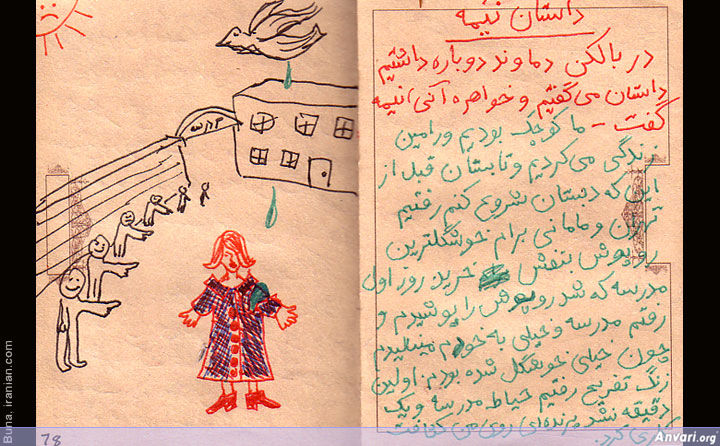 داستان نئیمه
در بالکن دماوند دوباره داشتیم
داستان می گفتیم و خواهره آنی انیمه
گفت - ما کوچک بودیم ورامین
زندگی می کردیم و تابستان قبل از
این که دبستان شروع کنم رفتیم
تهران و مامانی برام خوشگلترین
روپوش بنفش خرید روز اول
مدرسه که شد روپوش را پوشیدم و
رفتم مدرسه و خیلی به خودم میبالیدم
چون خیلی خوشگل شده بودم اولین
زنگ تفریح رفتیم حیاط مدرسه و یک
دقیقه نشد پرنده ای روی من
مدرسه
78
Buna. iranian.com
Anvari.org